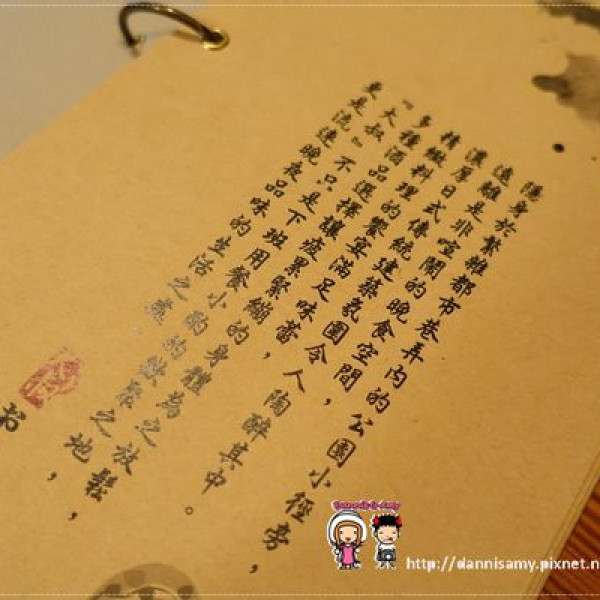 隱身於繁雜都市巷弄內的公園小徑旁，
遠離是非喧鬧的晚食空間，
濃厚日式傳統建築氛圍令人陶醉其中。
精緻料理的饗宴滿足味蕾，
多種酒品選擇讓疲累緊繃的身體為之放鬆，
『大叔』不只是下班用餐小酌的歡聚之地，
更是流連晚夜品味的生活之處。
http://dannisamy.pixnet.n